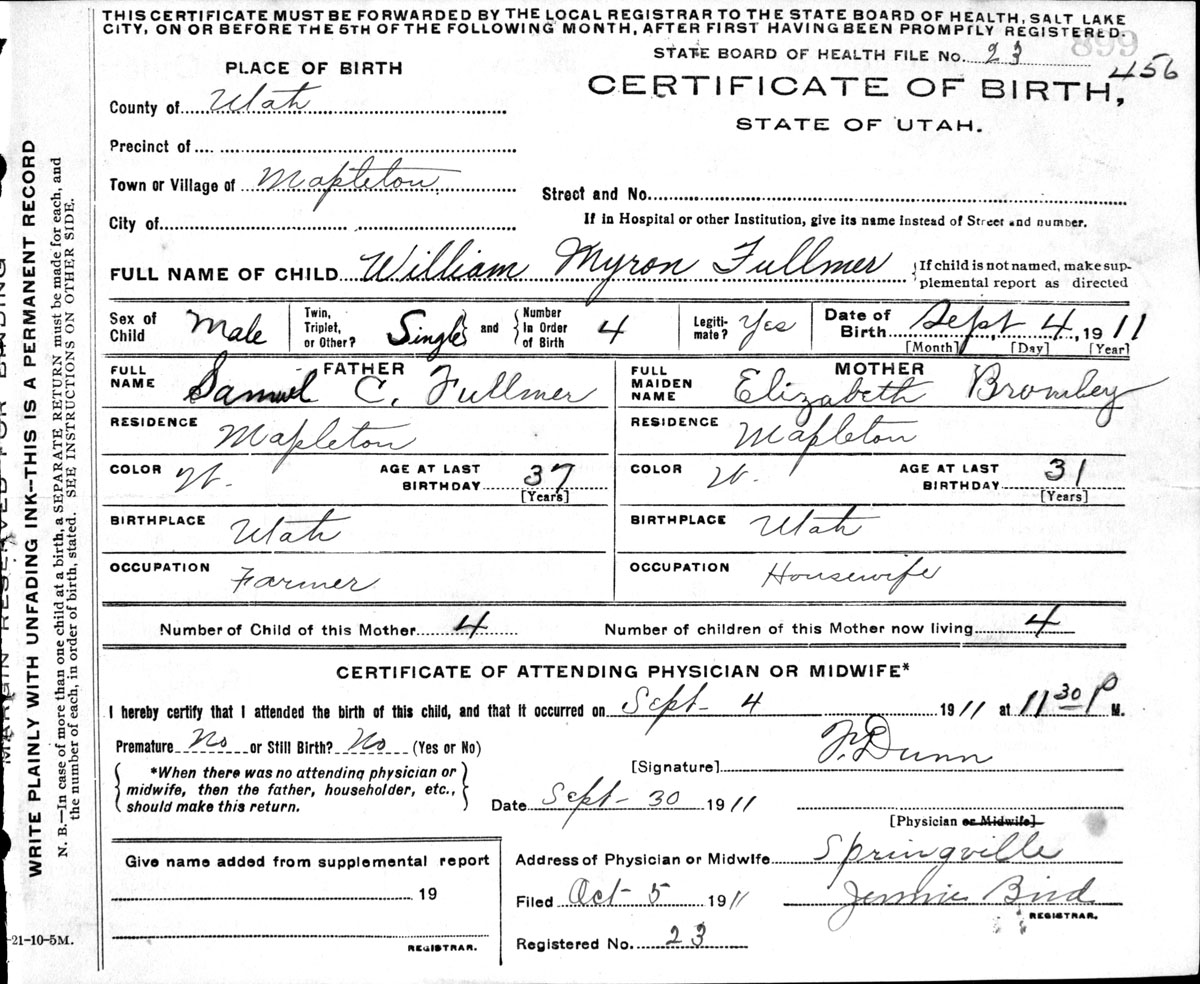 THIS CERTIFICATE MUST BE FORWARDED BY THE LOCAL REGISTRAR TO THE STATE BOARD OF HEALTH, SALT LAKE
CITY, ON OR BEFORE THE 5TH OF THE FOLLOWING MONTH, AFTER FIRST HAVING BEEN PROMPTLY REGISTERED.
899
STATE BOARD OF HEALTH FILE No. 23
456
PLACE OF BIRTH
CERTIFICATE OF BIRTH,
STATE OF UTAH.
County of Utah
Precinct of
Town or Village of Mapleton
Street and No.
City of
If in Hospital or other Institution, give its name instead of Street and number.
FULL NAME OF CHILD William Myron Fullmer
{If child is not named, make sup-
plemental report as directed
Sex of Child Male
Twin, Triplet, or Other? Single} and {Number In Order of Birth 4
Legiti-mate? Yes
Date of Birth Sept 4, 1911
[Month] [Day] [Year]
FATHER
FULL NAME Samuel C. Fullmer
MOTHER
FULL MAIDEN NAME Elizabeth Bromley
RESIDENCE Mapleton
RESIDENCE Mapleton
COLOR W. AGE AT LAST BIRTHDAY 37 [Years]
COLOR W. AGE AT LAST BIRTHDAY 31 [Years]
BIRTHPLACE Utah
BIRTHPLACE Utah
OCCUPATION Farmer
OCCUPATION Housewife
Number of Child of this Mother 4 Number of children of this Mother now living 4
CERTIFICATE OF ATTENDING PHYSICIAN OR MIDWIFE*
I hereby certify that I attended the birth of this child, and that it occurred on Sept- 4 1911 at 11 30 P M.
Premature No or Still Birth? No (Yes or No)
[Signature] F. Dunn
{*When there was no attending physician or
midwife, then the father, householder, etc.,
should make this return.}
Date Sept- 30 1911
[Physician or Midwife]
Give name added from supplemental report
19
REGISTRAR.
Address of Physician or Midwife Springville
Filed Oct 5 1911 Jennie Bird
REGISTRAR.
Registered No. 23
-21-10-5M.
MARGIN RESERVED FOR BINDING
WRITE PLAINLY WITH UNFADING INK—THIS IS A PERMANENT RECORD
N. B.—In case of more than one child at a birth, a SEPARATE RETURN must be made for each, and
the number of each, in order of birth, stated. SEE INSTRUCTIONS ON OTHER SIDE.